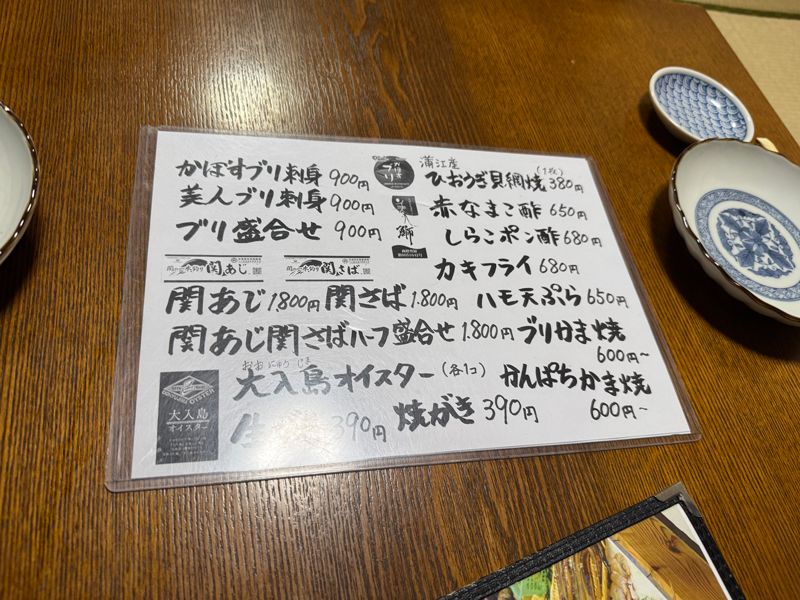 かぼすブリ刺身 900円
美人ブリ刺身 900円
ブリ盛合せ 900円
関あじ 関さば
関あじ 1.800円 関さば 1.800円
関あじ関さばハーフ盛合せ 1.800円
おおにゅうじま
大入島オイスター(各1コ)
OYSTER
大入島
オイスター
生 390円 焼がき 390円
蒲江産
ひおうぎ貝網焼(1枚) 380円
赤なまこ酢 650円
しらこポン酢 680円
カキフライ 680円
ハモ天ぷら 650円
ブリかま焼
600円~
かんぱちかま焼
600円~